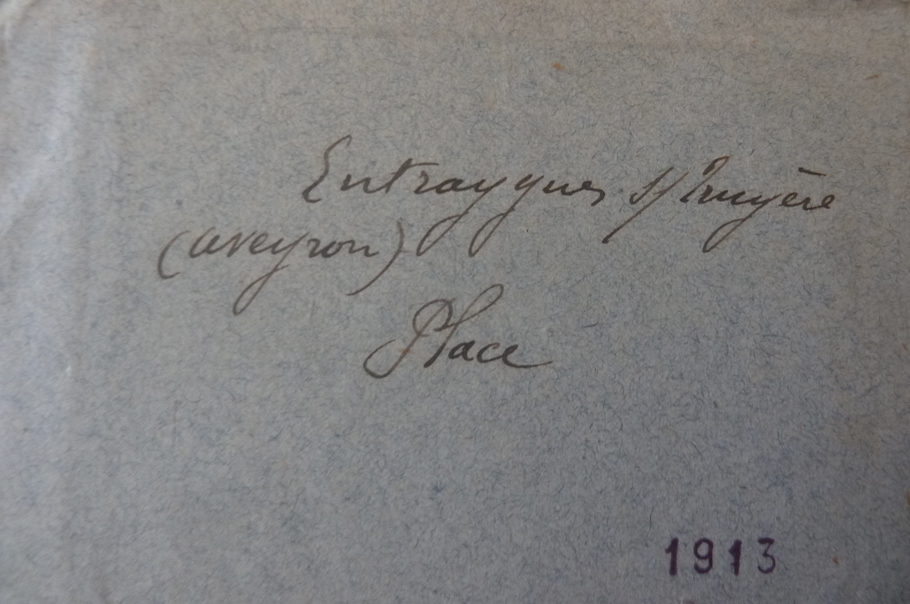 Entraygues s/ Truyère
(aveyron)
Place
1913